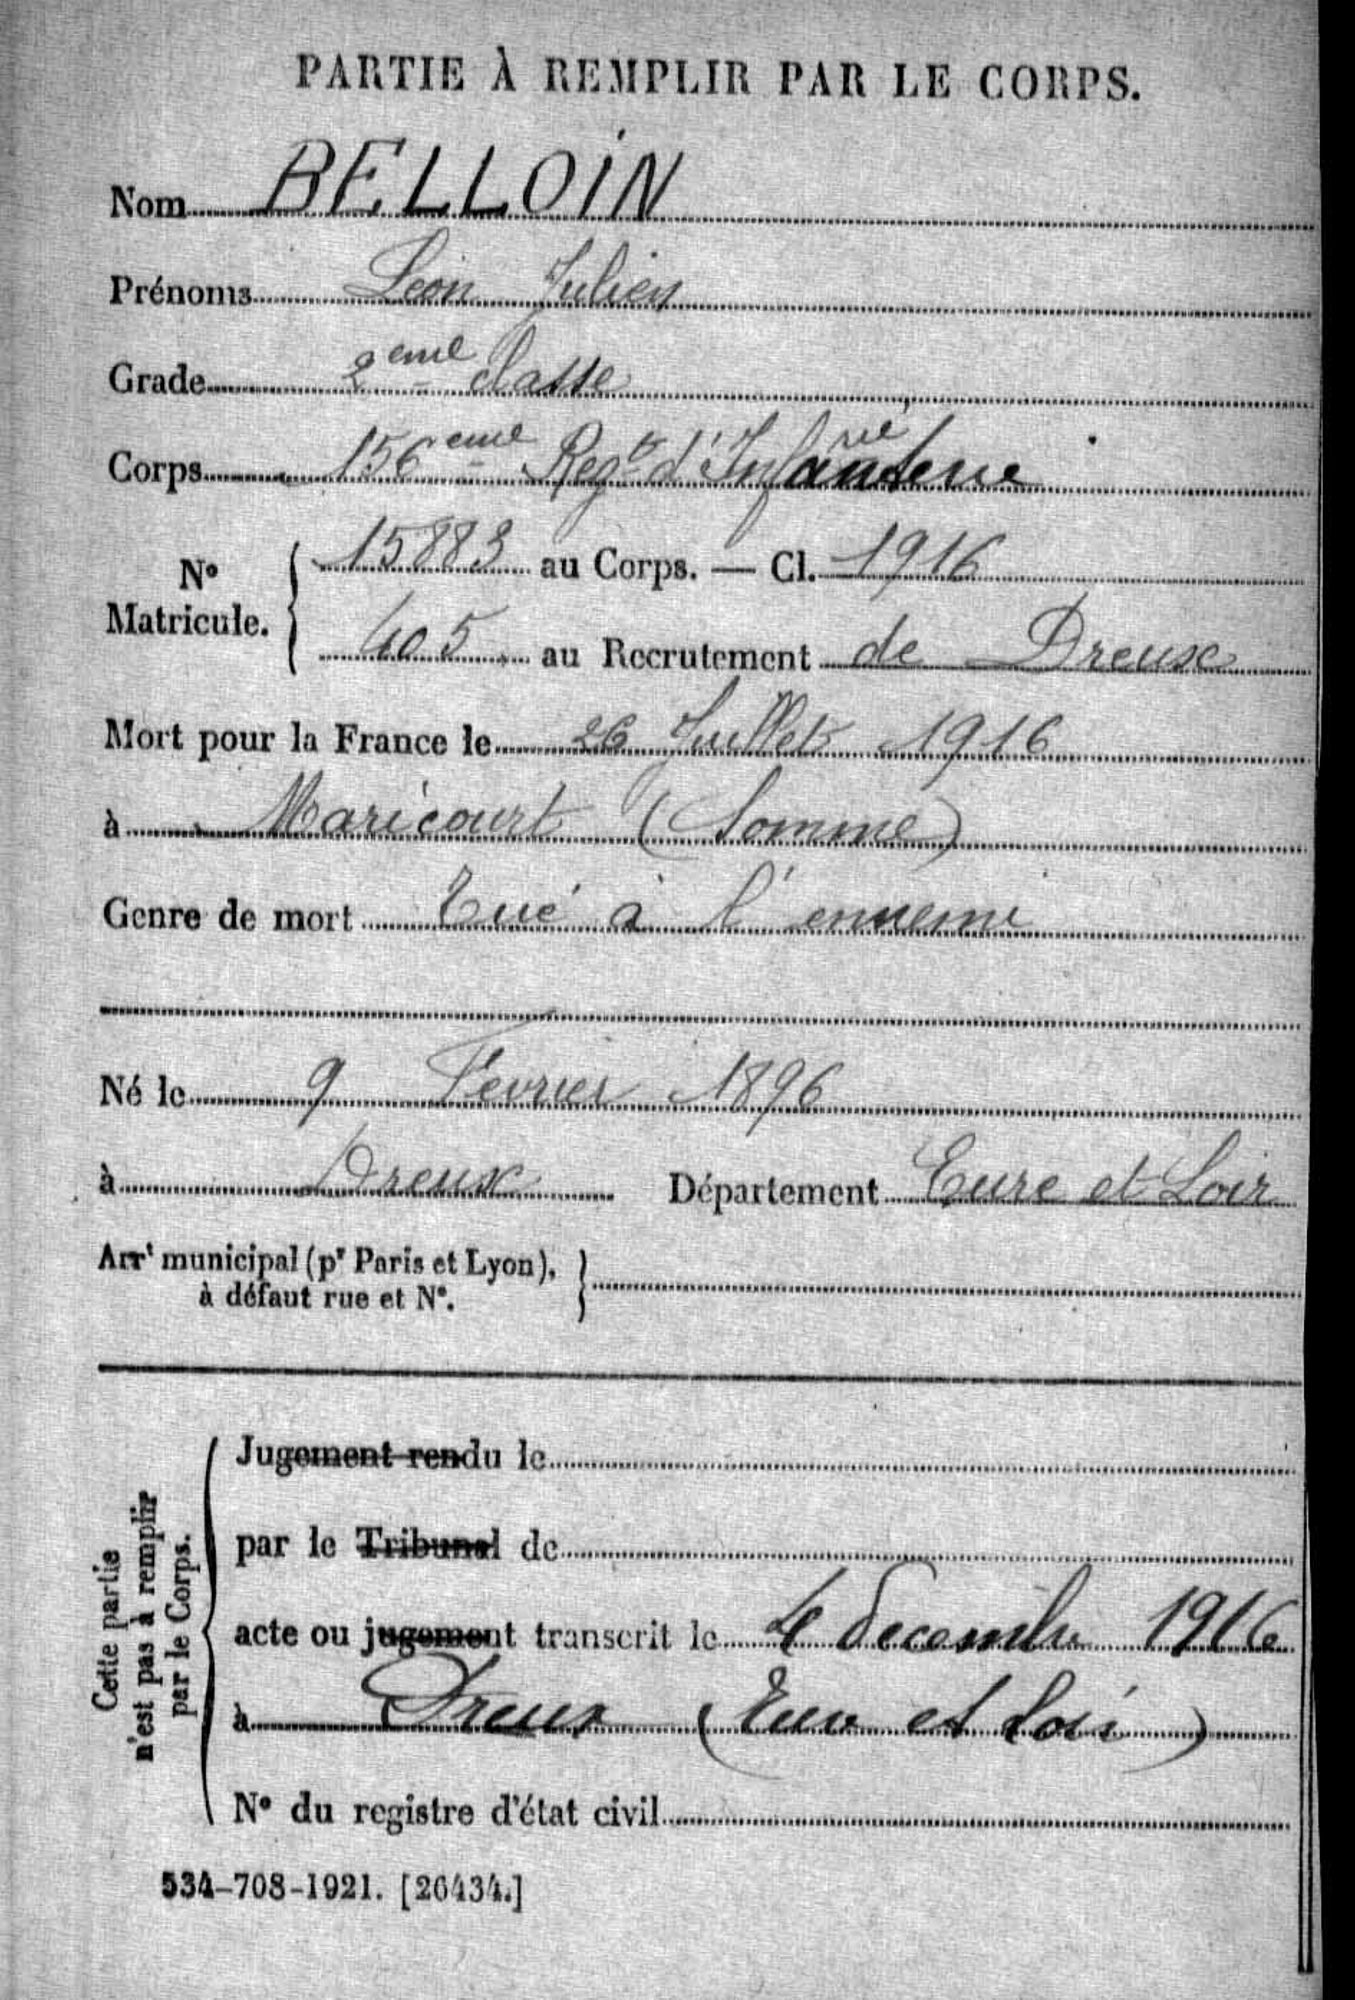 PARTIE À REMPLIR PAR LE CORPS.
Nom BELLOIN
Prénoms Léon Julien
Grade 2eme classe
Corps 156eme Regt d'Infanterie
N° Matricule. 15883 au Corps. — Cl. 1916
405 au Recrutement de Dreux
Mort pour la France le 26 Juillet 1916
à Maricourt (Somme)
Genre de mort Tué à l'ennemi
Né le 9 Fevrier 1896
à Dreux Département Eure et Loir
Arrt municipal (pr Paris et Lyon),
à défaut rue et N°.
Cette partie
n'est pas à remplir
par le Corps.
Jugement rendu le
par le Tribunal de
acte ou jugement transcrit le 4 decembre 1916
à Dreux (Eure et Loir)
N° du registre d'état civil
534-708-1921. [26434.]